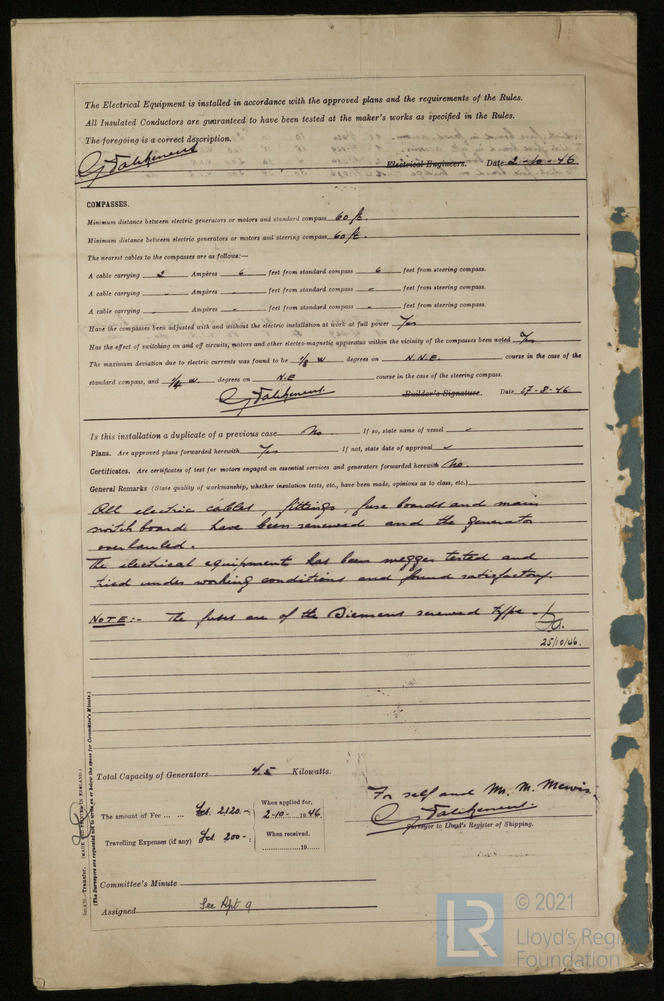 The Electrical Equipment is installed in accordance with the approved plans and the requirements of the Rules.
All Insulated Conductors are guaranteed to have been tested at the maker's works as specified in the Rules.
The foregoing is a correct description.
Electrical Engineers. Date 2-10-46
COMPASSES.
Minimum distance between electric generators or motors and standard compass 60 ft.
Minimum distance between electric generators or motors and steering compass 60 ft.
The nearest cables to the compasses are as follows:—
A cable carrying 2 Ampères 6 feet from standard compass 6 feet from steering compass.
A cable carrying - Ampères - feet from standard compass - feet from steering compass.
A cable carrying - Ampères - feet from standard compass - feet from steering compass.
Have the compasses been adjusted with and without the electric installation at work at full power Yes
Has the effect of switching on and off circuits, motors and other electro-magnetic apparatus within the vicinity of the compasses been noted Yes
The maximum deviation due to electric currents was found to be 1/8 W degrees on N.N.E. course in the case of the
standard compass, and 1/4 W. degrees on N.E course in the case of the steering compass.
Builder's Signature. Date 17-8-46
Is this installation a duplicate of a previous case No If so, state name of vessel -
Plans. Are approved plans forwarded herewith Yes If not, state date of approval -
Certificates. Are certificates of test for motors engaged on essential services and generators forwarded herewith No.
General Remarks (State quality of workmanship, whether insulation tests, etc., have been made, opinions as to class, etc.)
All electric cables, fittings, fuse boards and main
switch board have been renewed and the generator
overhauled.
The electrical equipment has been megger tested and
tried under working conditions and found satisfactory.
NOTE:- The fuses are of the Siemens renewed type.
25/10/46.
Total Capacity of Generators 4.5 Kilowatts.
For self and Mr. M. Mewis.
The amount of Fee ... ... 2120.-
When applied for, 2-10- 1946.
Surveyor to Lloyd's Register of Shipping.
Travelling Expenses (if any) 200.-
When received, 19
Committee's Minute
Assigned See Rpt 9
Transfer. (MADE AND PRINTED IN ENGLAND.)
(The Surveyors are requested not to write on or below the space for Committee's Minute.)
LR
© 2021
Lloyd's Register
Foundation